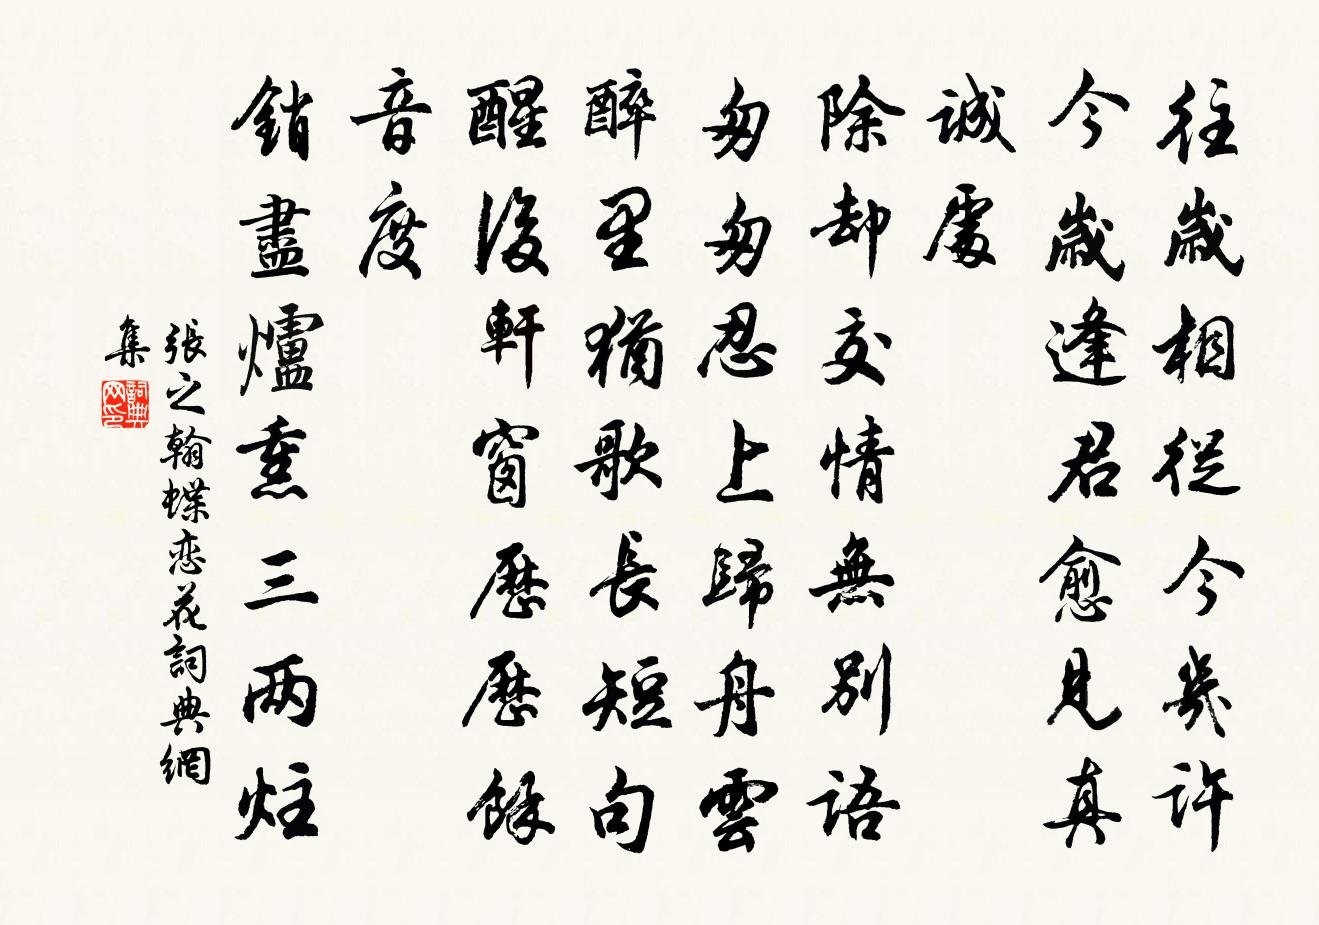 往歲相從今幾許
今歲逢君愈見真
誠處
除却交情無別語
匆匆忍上歸舟雲
醉里猶歌長短句
醒後軒窗歷歷餘
音度
銷盡爐熏三两炷
張之翰蝶恋花詞典網
集
詞典
网印